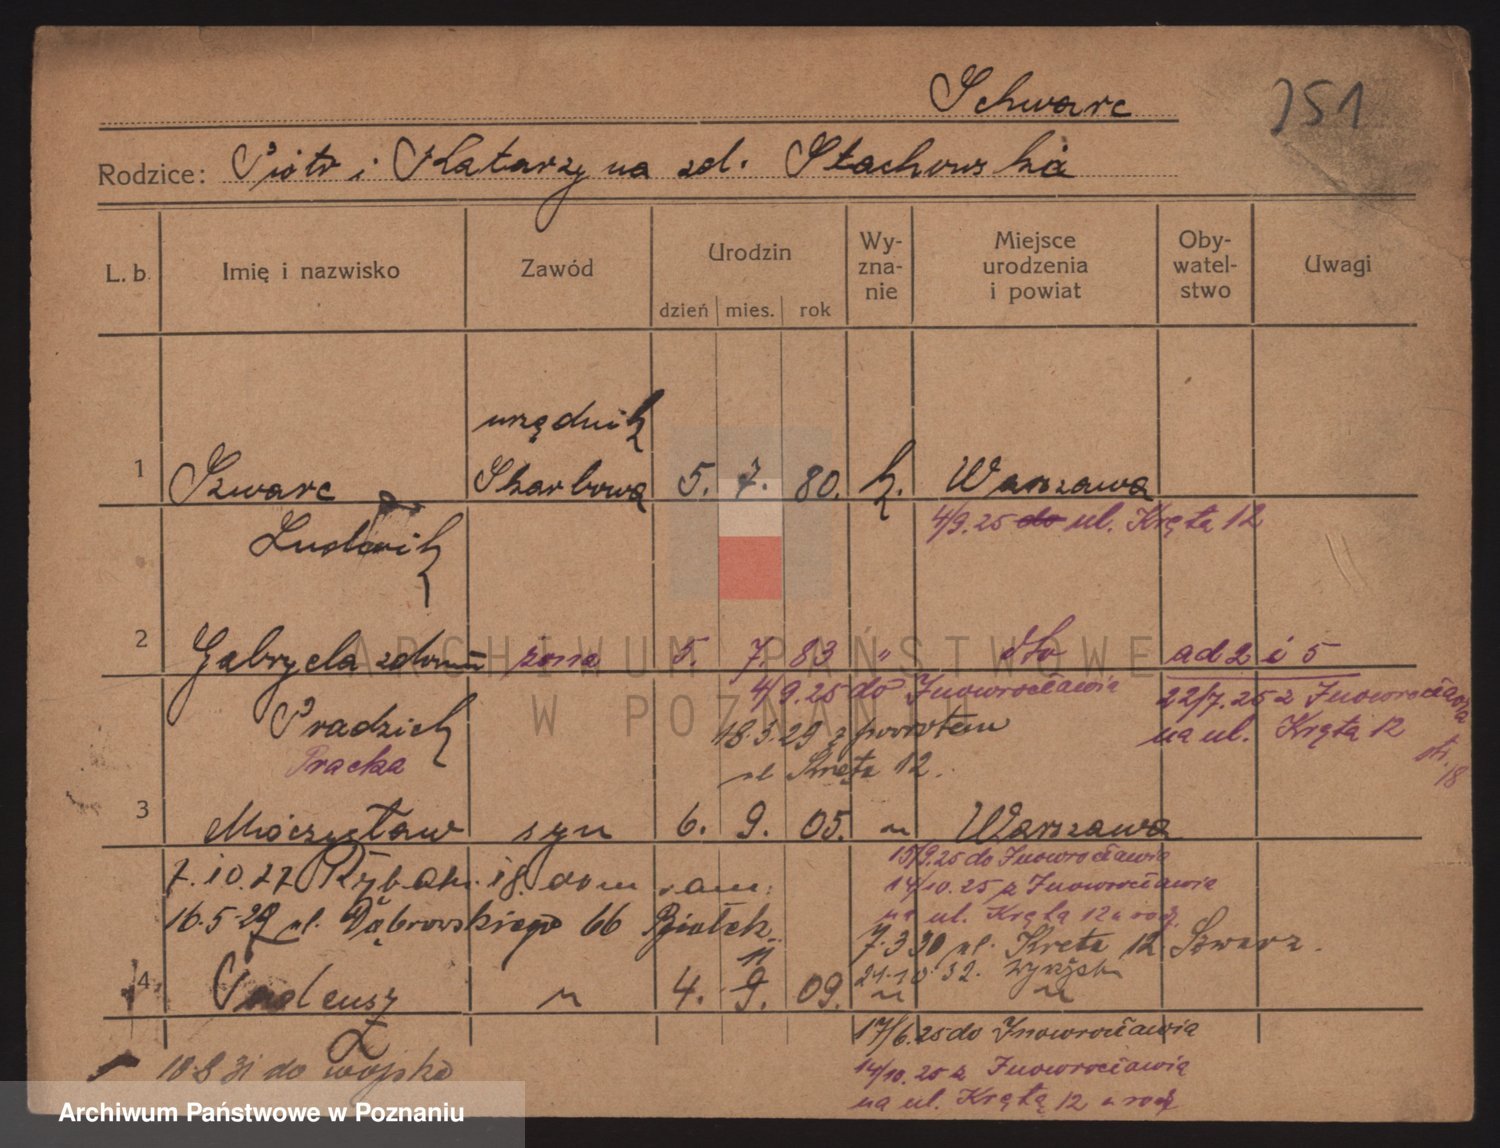 Schwarc
251
Rodzice: Piotr i Katarzyna zd. Stachowska
L. b. Imię i nazwisko Zawód Urodzin dzień mies. rok Wy-zna-nie Miejsce urodzenia i powiat Oby-watel-stwo Uwagi
urzędnik
1 Szwarc Skarbowy 5. 7. 80. k. Warszawa
4/9.25 do ul. Kręta 12
Ludwik
2 Gabryela zdomu żona 5. 7. 83 " dto ad 2 i 5
4/9.25 do Inowrocławia
22/7.25 z Inowrocławia
Pradzich
18.3.29 z powrotem
na ul. Krętą 12
Pracka
ul Kręta 12.
str. 18
3 Mieczysław syn 6. 9. 05. " Warszawa
15/9.25 do Inowrocławia
7.10.27 Rybaki 18. dom
14/10.25 z Inowrocławia
na ul. Kręta 12 u rodz
16.5.29 ul. Dąbrowskiego 66 Białek
7.3.30 ul. Kręta 12 Szwarz.
21.10.32.
11
4 Tadeusz " 4. 9. 09. " "
17/6.25 do Inowrocławia
10.8.31 do wojska
14/10.25 z Inowrocławia
na ul. Krętą 12 u rodz
ARCHIWUM PAŃSTWOWE
W POZNANIU
Archiwum Państwowe w Poznaniu